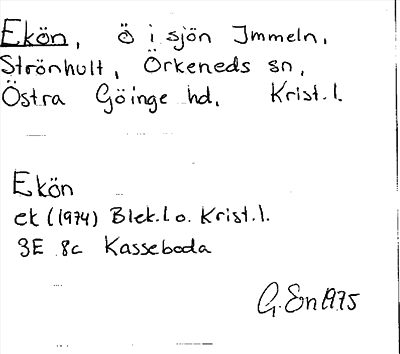 Ekön, Ö i sjön Immeln,
Strönhult, Örkeneds sn,
Östra Göinge hd, Krist. l.
Ekön
ek (1974) Blek. l o. Krist. l.
3E 8c Kasseboda
G. En 1975